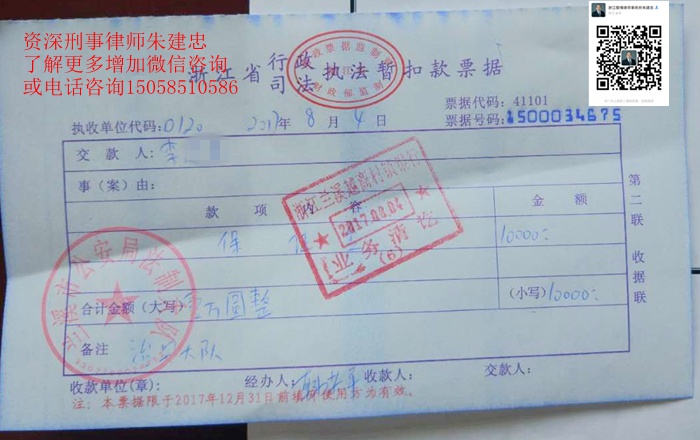 资深刑事律师朱建忠
了解更多增加微信咨询
或电话咨询15058510586
浙江省行政司法执法暂扣款票据
票据代码：41101
执收单位代码：0120 2017年8月4日
票据号码：1500034675
交款人：李
事（案）由：
款项内容 金额
保 10000
合计金额（大写）壹万圆整 （小写）10000
备注 治安大队
收款单位(章)： 经办人： 收款人： 交款人：
注：本票据限于2017年12月31日前填开使用方为有效。
第二联 收据联
2017.08.04
业务清讫
(6)